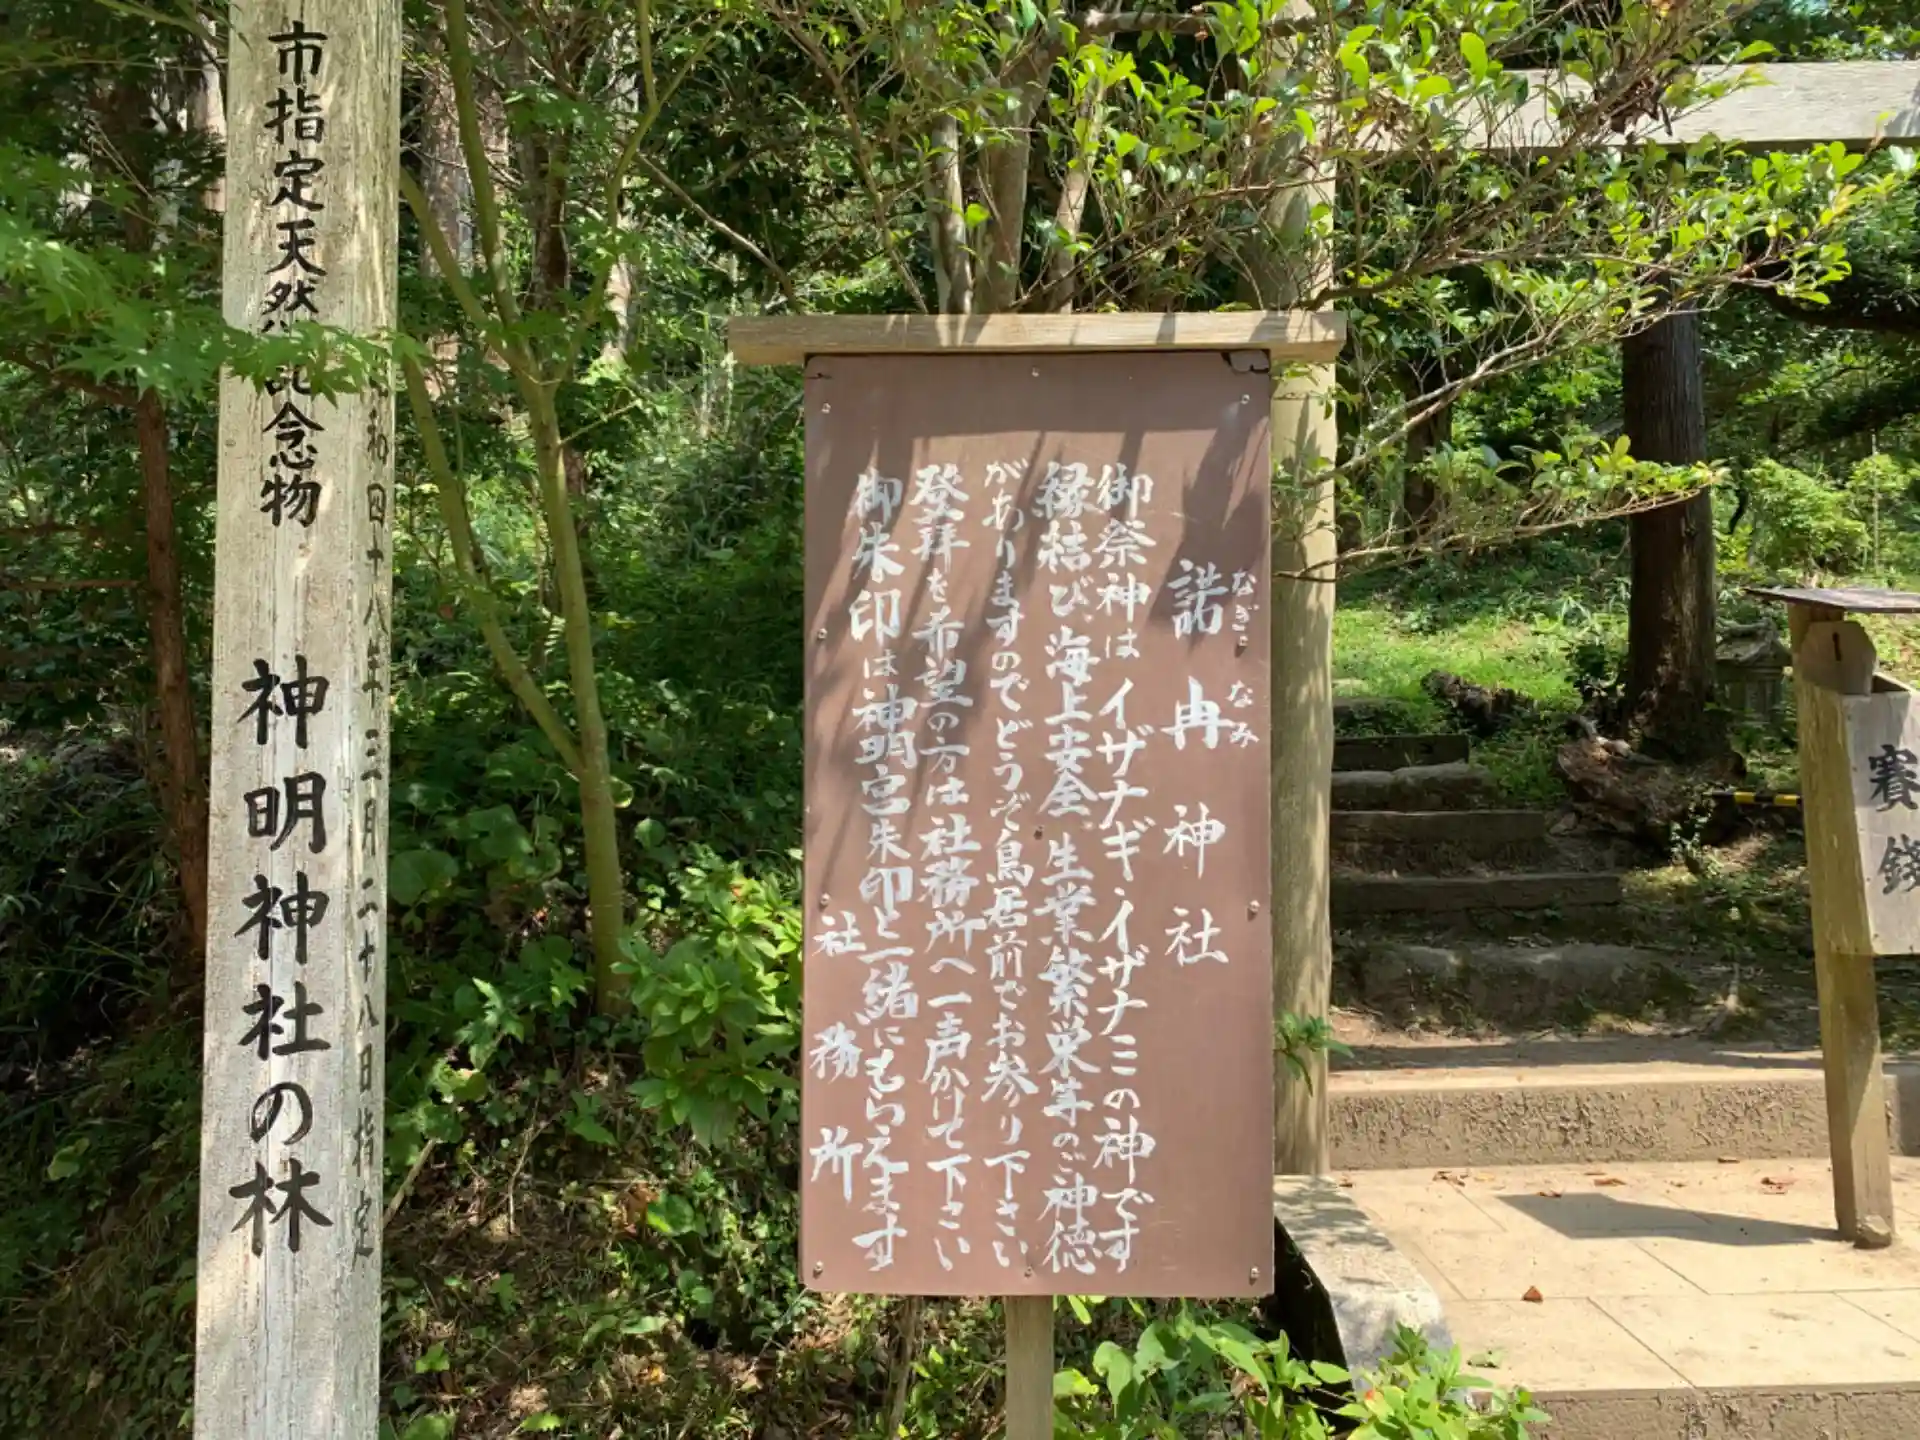 市指定天然記念物 神明神社の林
和四十八年三月二十八日指定
諾冉神社
なぎ なみ
御祭神は イザナギ・イザナミの神です
縁結び、海上安全、生業繁栄等のご神徳
がありますのでどうぞ鳥居前でお参り下さい
登拝を希望の方は社務所へ一声かけて下さい
御朱印は神明宮朱印と一緒にもらえます
社務所
賽銭